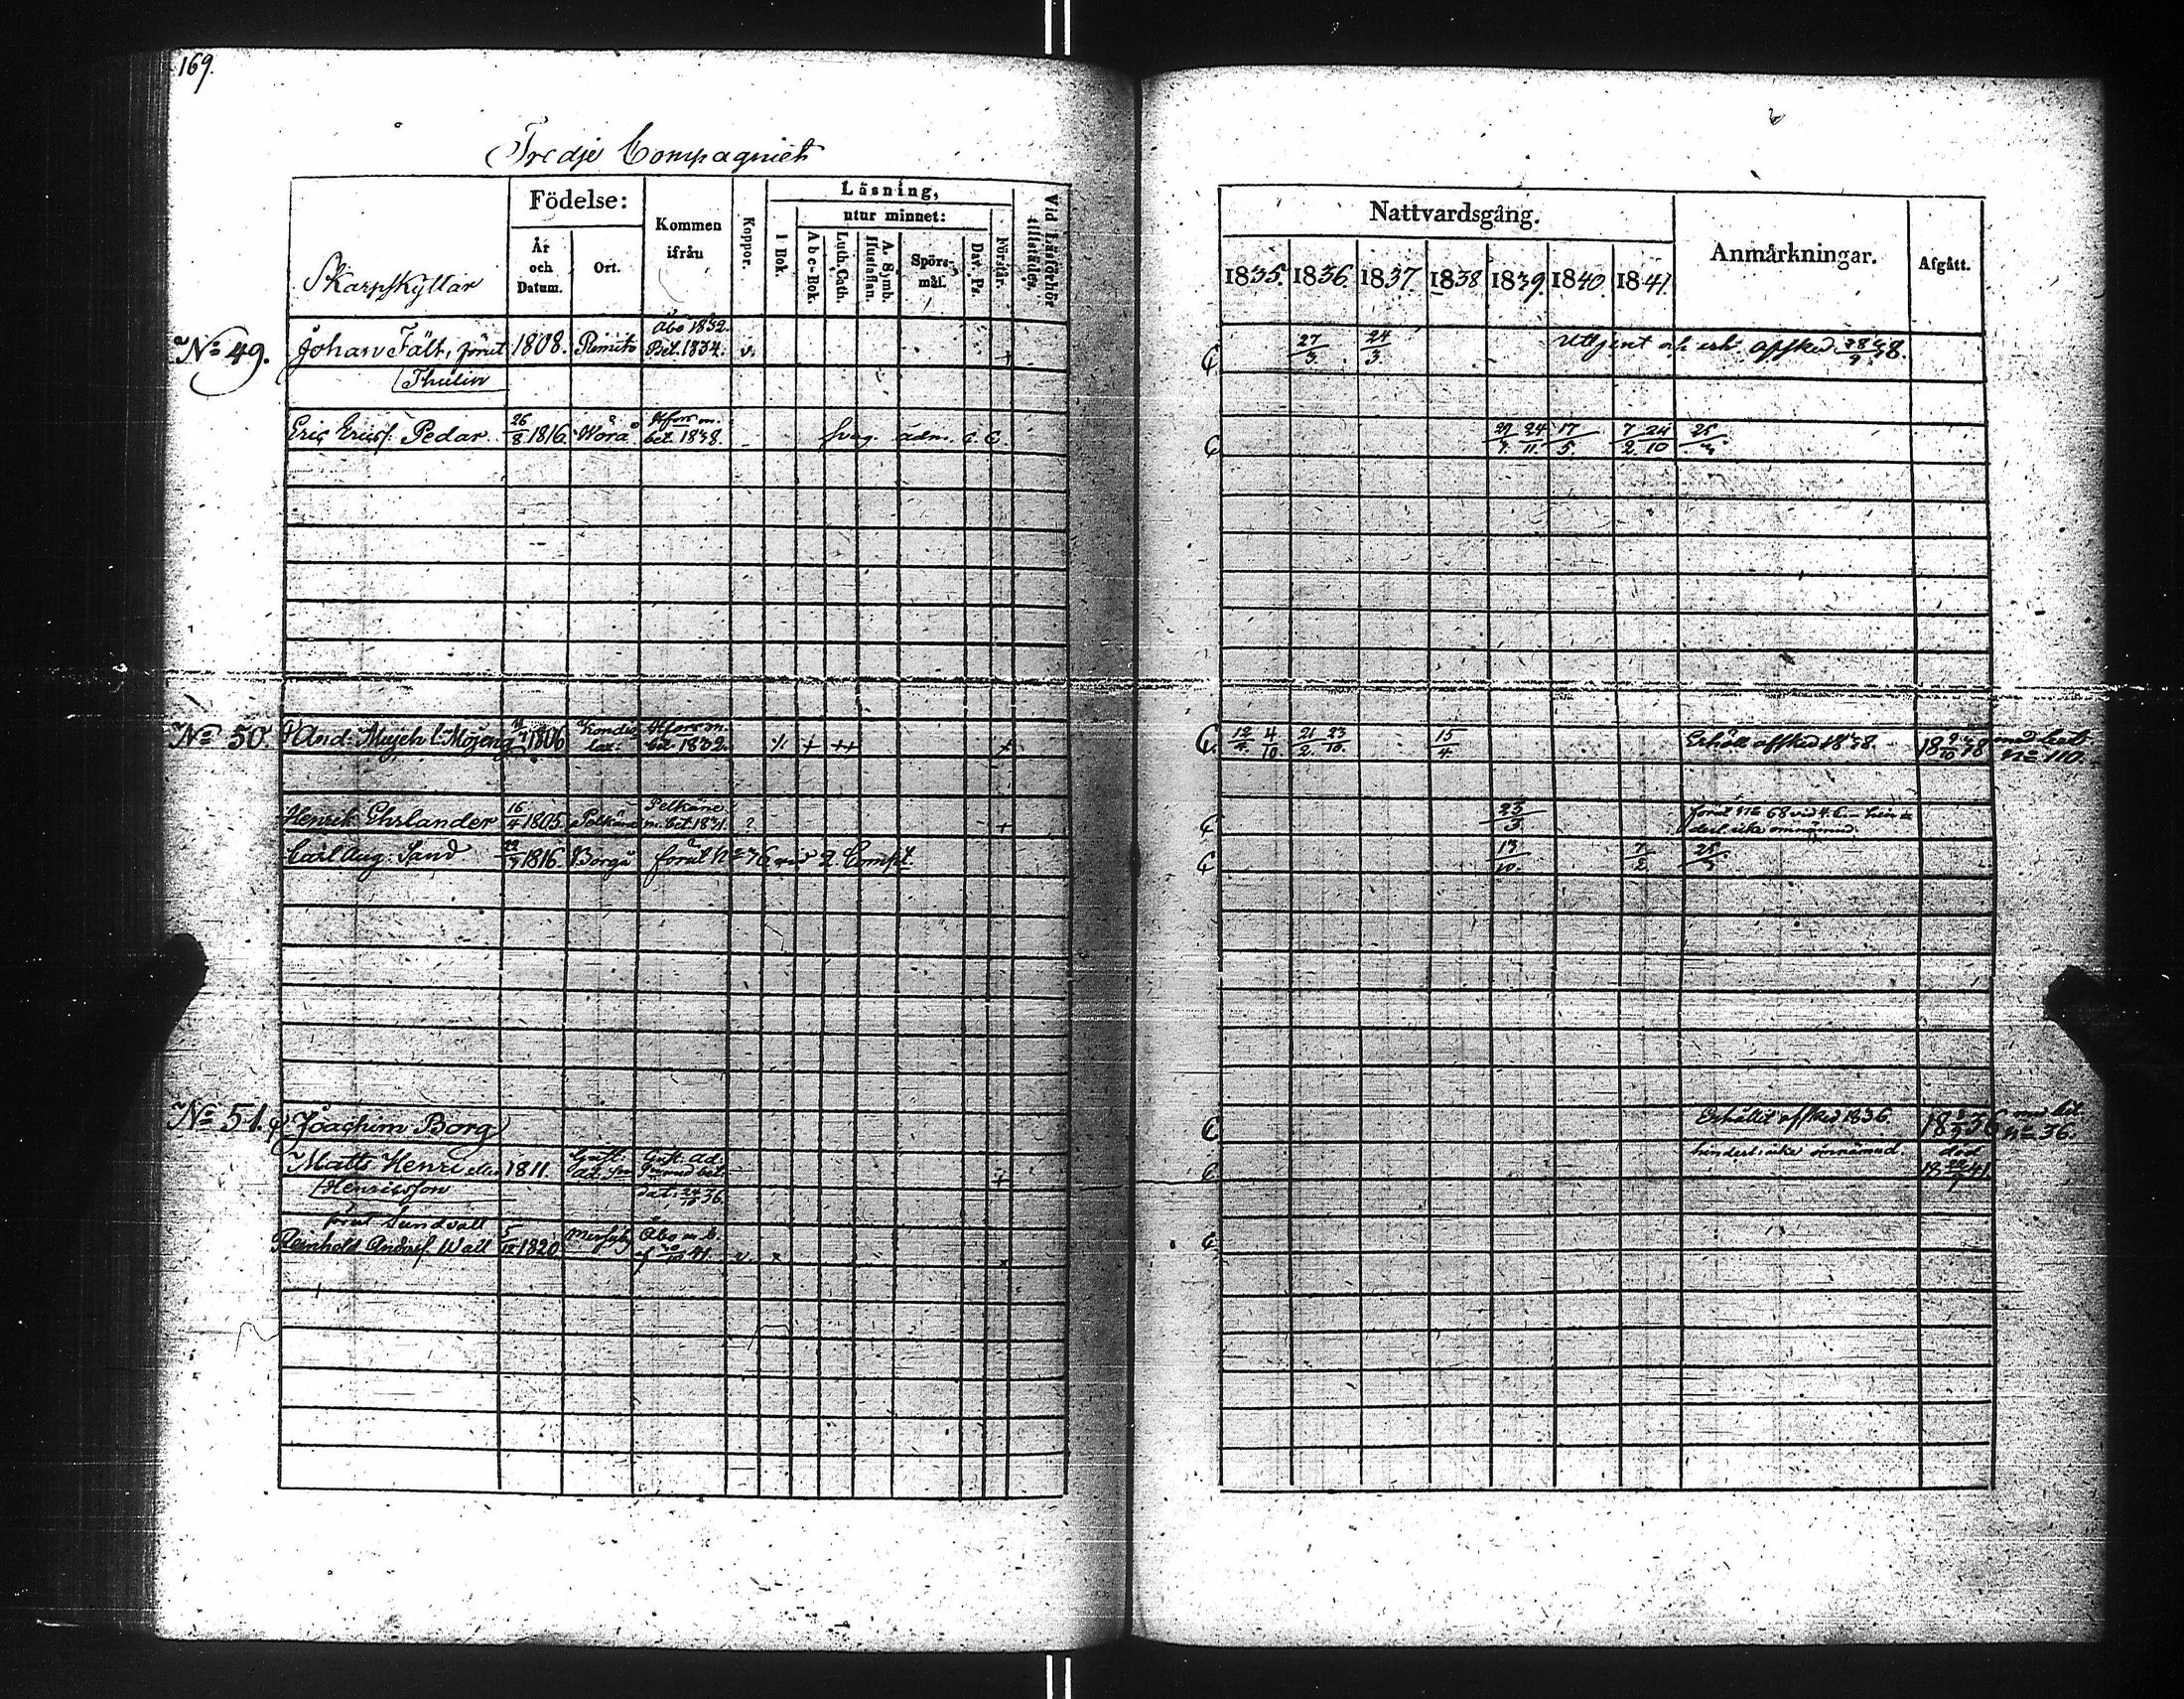 169.
Tredje Compagniet
Skarpskyttar
Födelse:
År och Datum.
Ort.
Kommen ifrån
Koppor.
Läsning,
I Bok.
utur minnet:
A b c-Bok.
Luth. Cath.
A. Symb. Hustaflan.
Spörs-mål.
Dav. Ps.
Förstår.
Vid Läsförhör tillstädes.
Nattvardsgång.
1835. 1836. 1837. 1838 1839. 1840. 1841.
Anmärkningar.
Afgått.
Åbo 1832.
No 49. Johan Fält, förut 1808. Rimito Bet. 1834. v. + 27/3. 24/3. Uttjent och erh. afsked 18 38.
Thulin
Eric Ericss: Pedar 26/8 1816. Wörå bet. 1838. svag adm. 24/11. 17/5. 7/2. 24/10 25
No 50. And. 1806 bet. 1832. + ++ + 12 4/10. 21/2. 23/10. 15/4. Erhöll afsked 1838. 18 38 med bet. no 110.
Henrik Ehrlander 16/4 1805. Pelkäne Pelkäne m. bet. 1831. ? + 23 förut No 68 vid 4. C. hin-
derl. icke omnämnd.
Carl Aug: Sand 1816. Borgå förut No 76 vid 2 Comp. 13/10. 7/2 25
No 51. Joachim Borg Erhållit afsked 1836. 18 36 med bet. no 36.
Matts Henri eller 1811. Gust. Ad. Gust. Ad. med bet. + hinderl: icke omnämnd. död 18 41.
Henricsson dat. 36
förut Sundvall
Reinhold Andersf. Wall 5/12 1820 Åbo m. b. 41. v. x